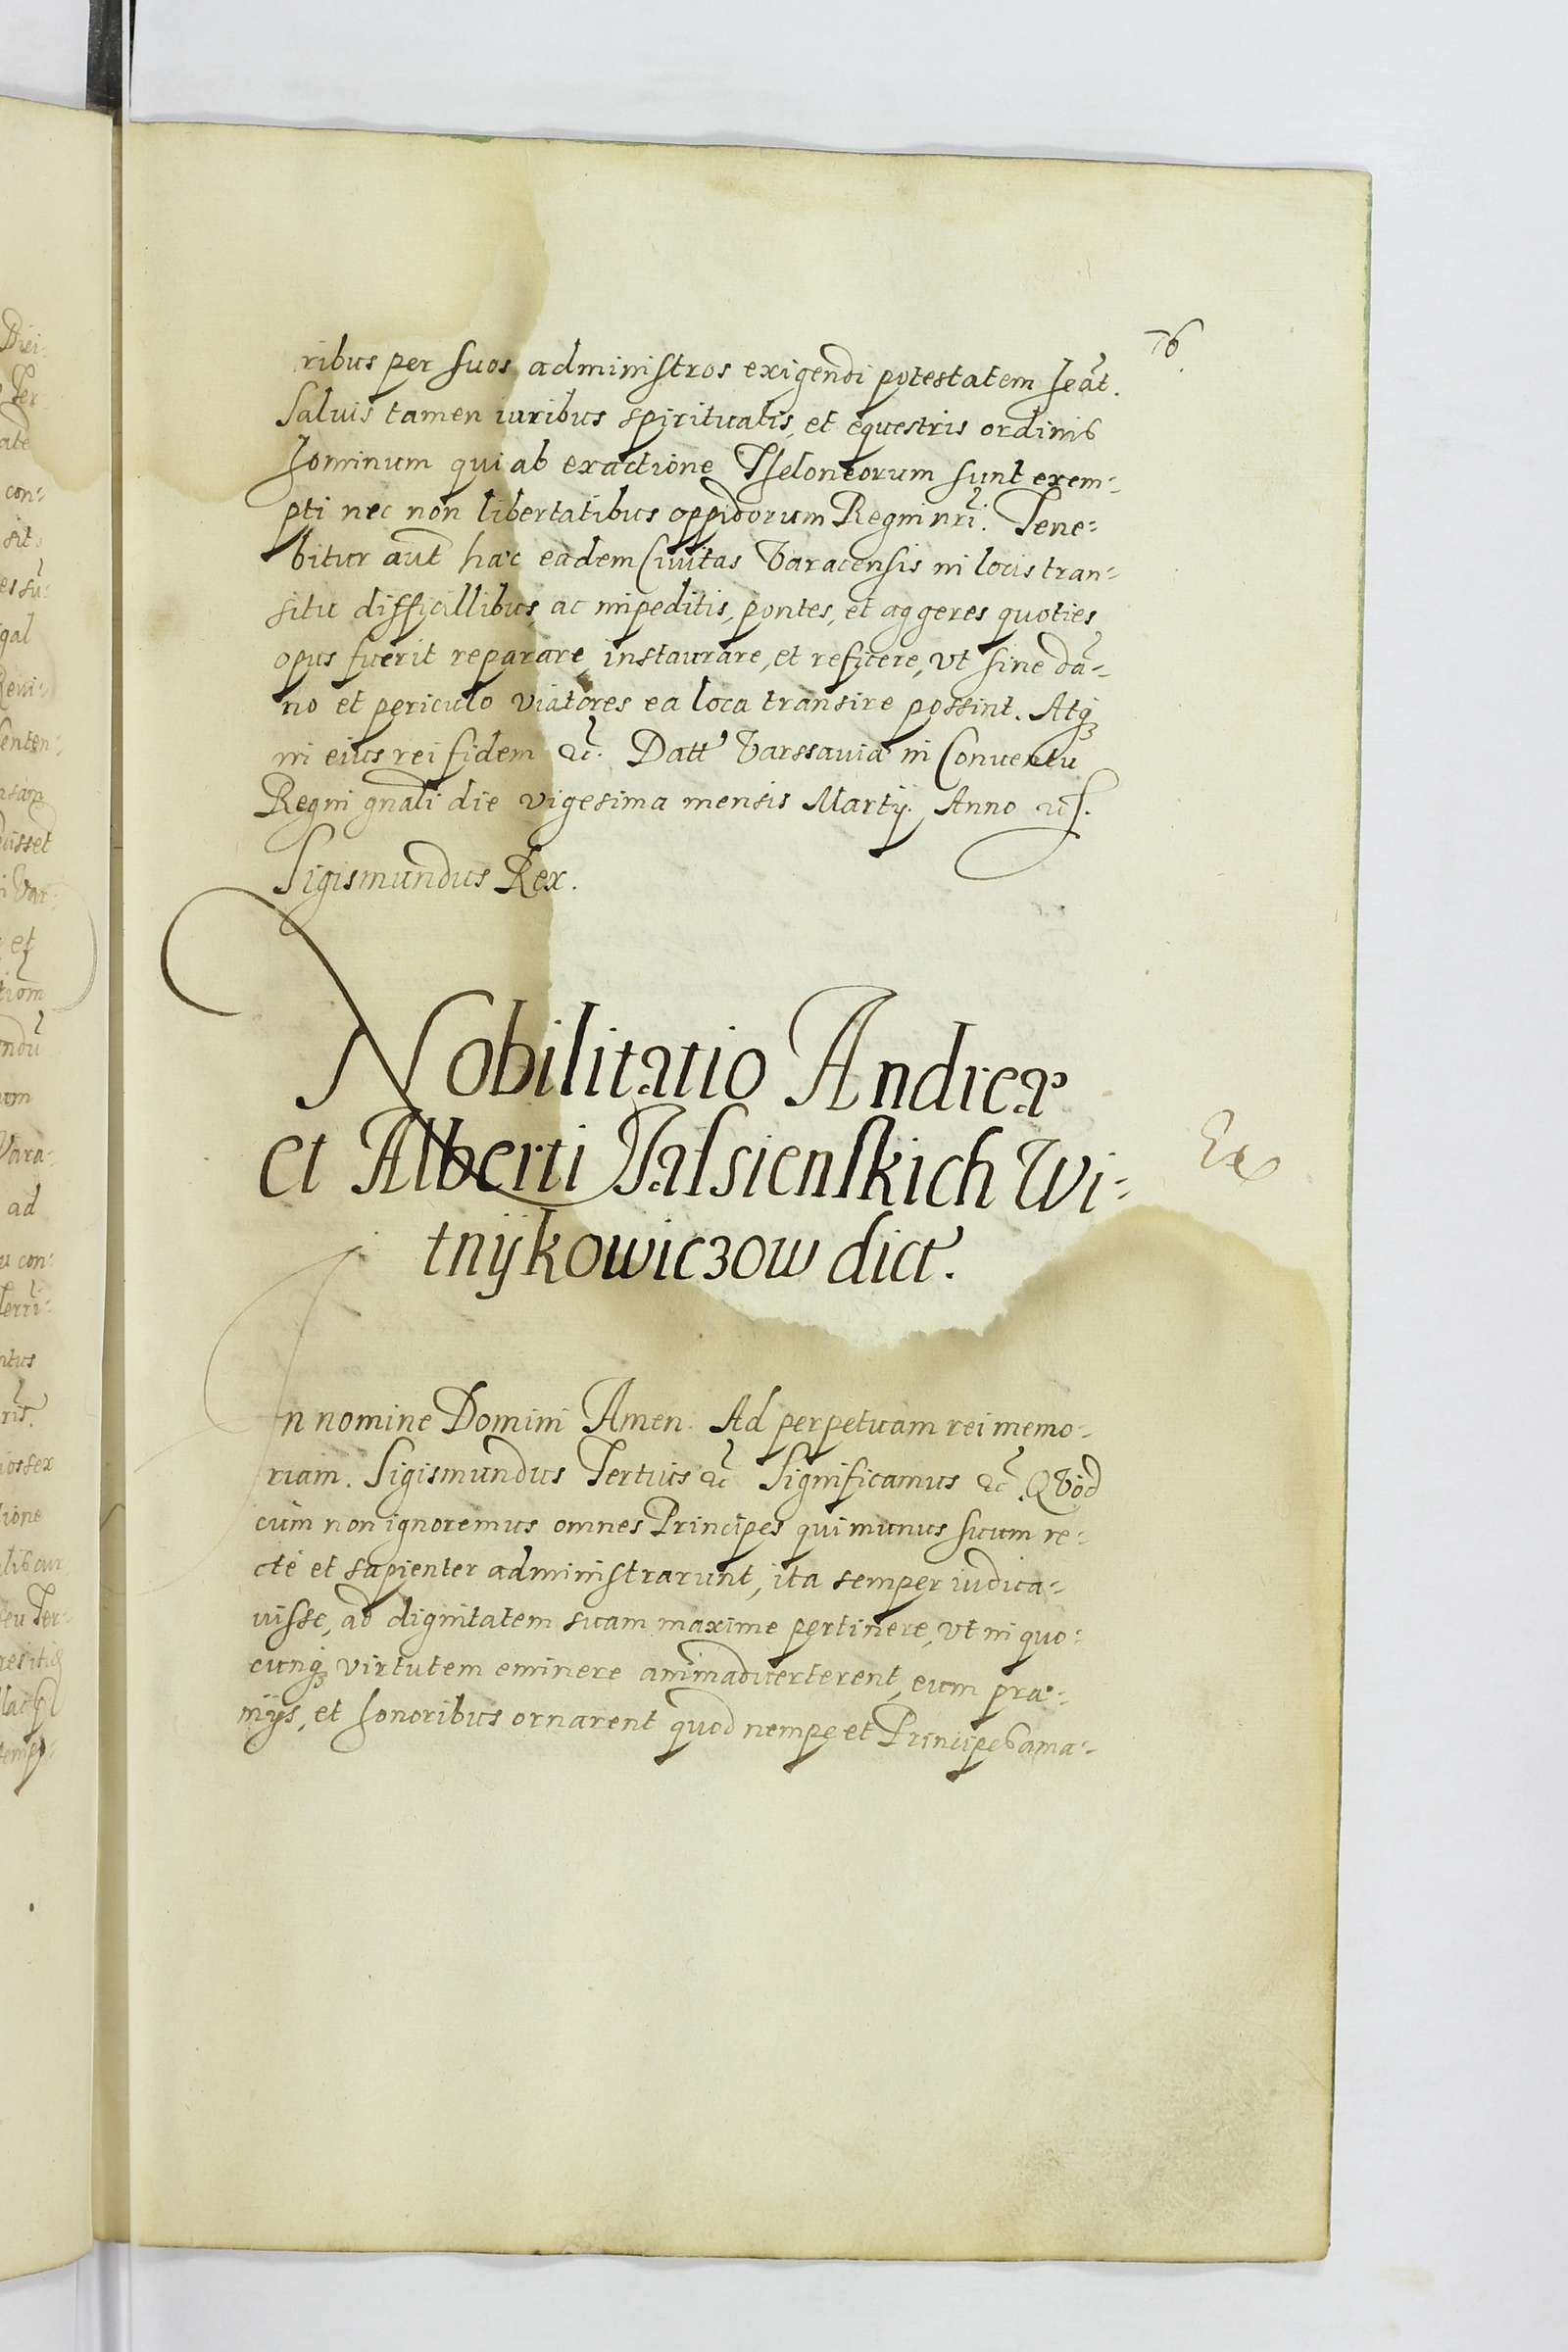 76.
ribus per suos administros exigendi potestatem heāt.
Saluis tamen iuribus spiritualis, et equestris ordinis
hominum qui ab exactione Theloneorum sunt exem-
pti nec non libertatibus oppidorum Regni nrī. Tene-
bitur aut̄ hæc eadem Ciuitas Varacensis in locis tran-
situ difficillibus, ac impeditis, pontes, et aggeres quoties
opus fuerit reparare, instaurare, et reficere, vt sine dā-
no et periculo viatores ea loca transire possint. Atqꝫ
in eius rei fidem &c. Datt' Varssauiæ in Conuentu
Regni gnāli die vigesima mensis Martij. Anno us.
Sigismundus Rex.
Nobilitatio Andreæ
et Alberti Jalsienskich Wi-
tnijkowiczow dict'.
In nomine Domini Amen. Ad perpetuam rei memo-
riam. Sigismundus Tertius &c Significamus &c. Quod
cum non ignoremus omnes Principes qui munus suum re-
cté et sapienter administrarunt, ita semper iudica-
uisse, ad dignitatem suam maxime pertinere, vt in quo-
cunqꝫ virtutem eminere animaduerterent, eum præ-
mijs, et honoribus ornarent quod nempe et Principes ama-
con-
sit
igal
enten-
uisset
et
Vara-
ad
u con-
ione